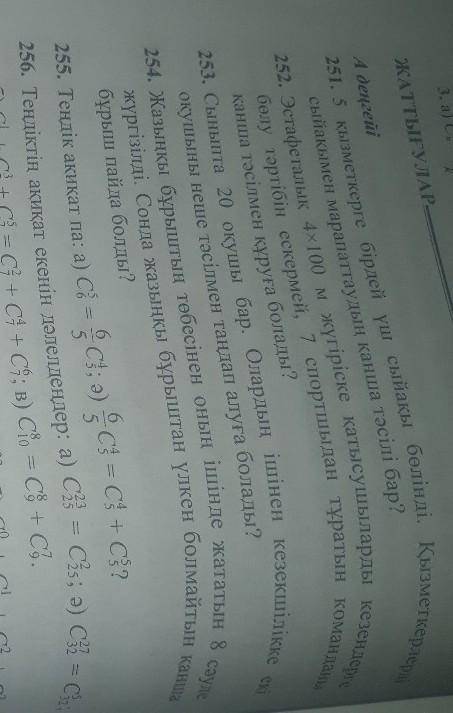 3. а) C
ЖАТТЫҒУЛАР
А деңгейі
251. 5 қызметкерге бірдей үш сыйақы бөлінді. Қызметкерлерді
сыйақымен марапаттаудың қанша тәсілі бар?
252. Эстафеталық 4×100 м жүгіріске қатысушыларды кезеңдерге
бөлу тәртібін ескермей, 7 спортшыдан тұратын команданы
қанша тәсілмен құруға болады?
253. Сыныпта 20 оқушы бар. Олардың ішінен кезекшілікке екі
оқушыны неше тәсілмен таңдап алуға болады?
254. Жазыңқы бұрыштың төбесінен оның ішінде жататын 8 сәуле
жүргізілді. Сонда жазыңқы бұрыштан үлкен болмайтын қанша
бұрыш пайда болды?
255. Теңдік ақиқат па: а) C₆⁵ = 6/5 C₅⁴; ә) 6/5 C₅⁴ = C₅⁴ + C₅⁵?
256. Теңдіктің ақиқат екенін дәлелдеңдер: а) C₂₅²³ = C₂₅²; ә) C₃₂²⁷ = C₃₂⁵;
= C₇² + C₇⁴ + C₇⁶; в) C₁₀⁸ = C₉⁸ + C₉⁷.